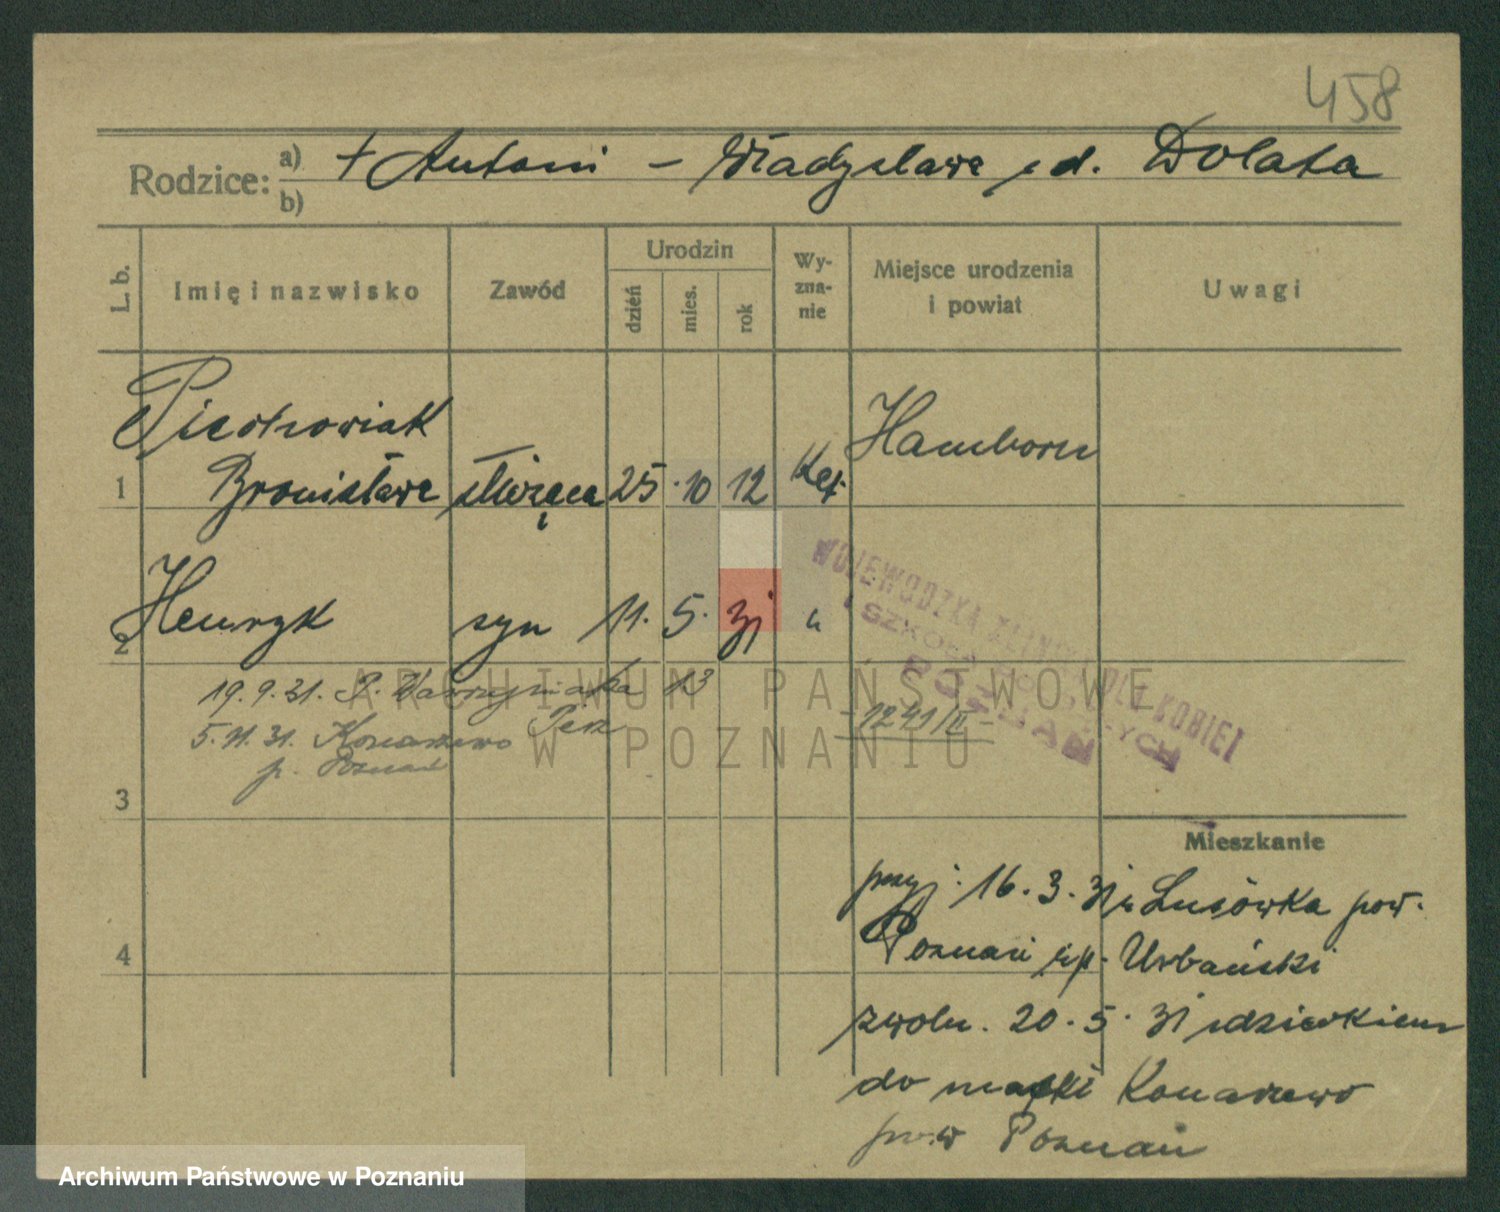 458
Rodzice: a) + Antoni – Władysława z d. Dolata
b)
L. b. Imię i nazwisko Zawód Urodzin dzień mies. rok Wy-zna-nie Miejsce urodzenia i powiat Uwagi
Piotrowiak Hamborn
1 Bronisława służąca 25. 10 12 kat.
2 Henryk syn 11. 5. 31 "
WOJEWÓDZKA KLINIKA DLA KOBIET
I SZKOŁA POŁOŻNYCH
POZNAŃ
19.9.31. P. Wawrzyniaka 13
5.11.31. Konarzewo
p. Poznań
- 1241/II -
3
Mieszkanie
przyj. 16. 3. 31 z Lusówka pow.
4 Poznań Urbański
zwoln. 20. 5. 31 z dzieckiem
do matki Konarzewo
pow Poznań
ARCHIWUM PAŃSTWOWE
W POZNANIU
Archiwum Państwowe w Poznaniu